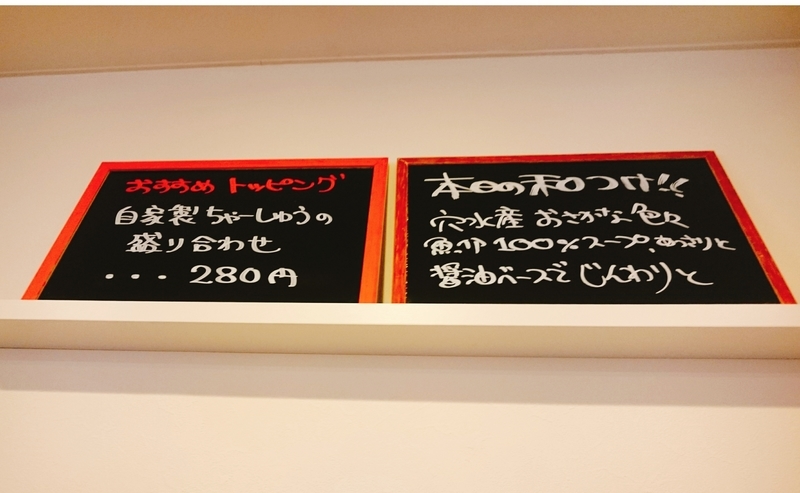 おすすめ トッピング
自家製 ちゃーしゅうの
盛り合わせ
・・・ 280円
本日の和つけ!!
穴水産 おさかな 色々
100%スープ、あさりと
醤油ベースで じんわりと